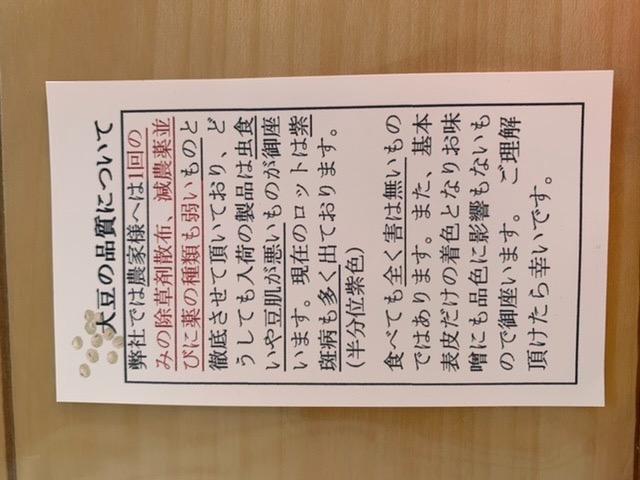 大豆の品質について
弊社では農家様へは1回の
みの除草剤散布、減農薬並
びに薬の種類も弱いものと
徹底させて頂いており、ど
うしても入荷の製品は虫食
いや豆肌が悪いものが御座
います。現在のロットは紫
斑病も多く出ております。
(半分位紫色)
食べても全く害は無いもの
ではあります。また、基本
表皮だけの着色となりお味
噌にも品色に影響もないも
ので御座います。　ご理解
頂けたら幸いです。